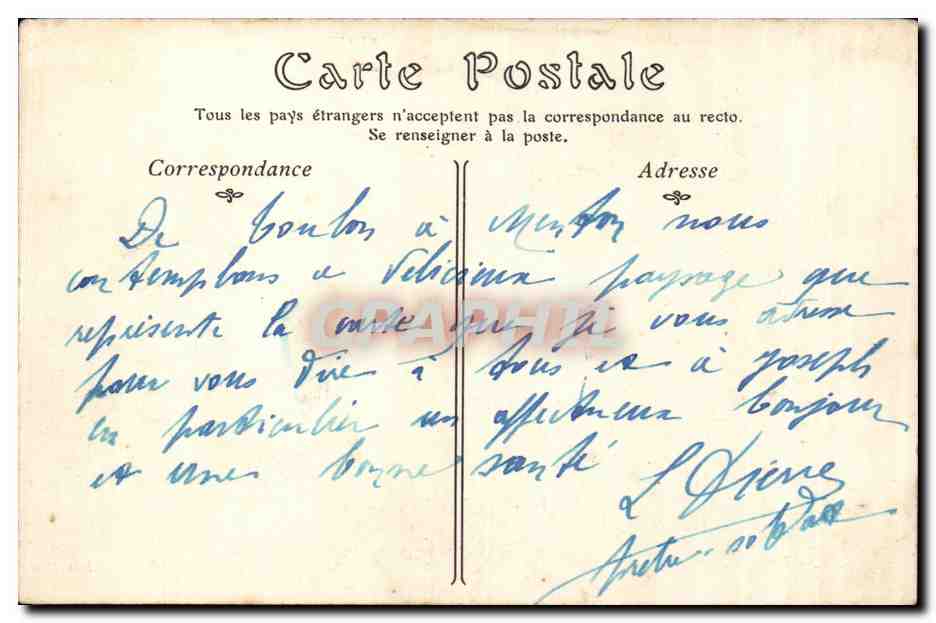 Carte Postale
Tous les pays étrangers n'acceptent pas la correspondance au recto.
Se renseigner à la poste.
Correspondance
Adresse
De Toulon à Menton nous
contemplons ce délicieux paysage que
représente la carte que je vous adresse
pour vous dire à tous et à Joseph
en particulier un affectueux bonjour
et une bonne santé
L Pierre
CPAPHIL